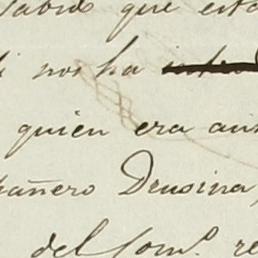 sabio que esta
i nos ha
quien era
pañero Drusina,
del Com.º re